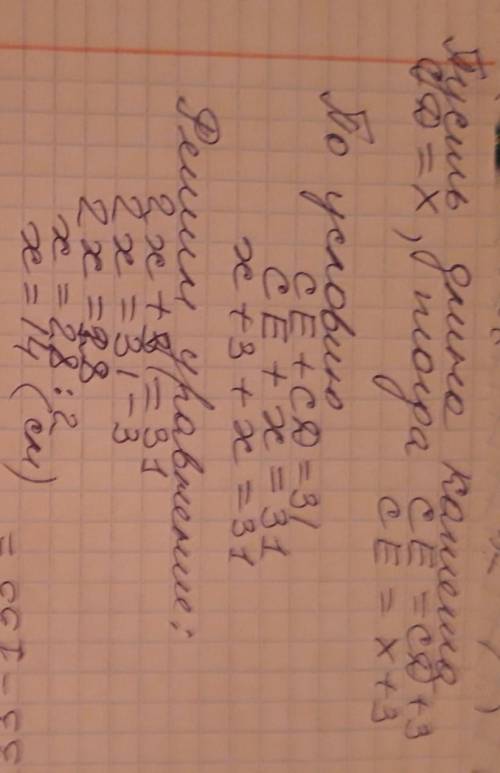 Пусть длина катета
CD = x, тогда CE = CD + 3
CE = x + 3
По условию
CE + CD = 31
CE + x = 31
x + 3 + x = 31
Решим уравнение:
2x + 3 = 31
2x = 31 - 3
2x = 28
x = 28 : 2
x = 14 (см)